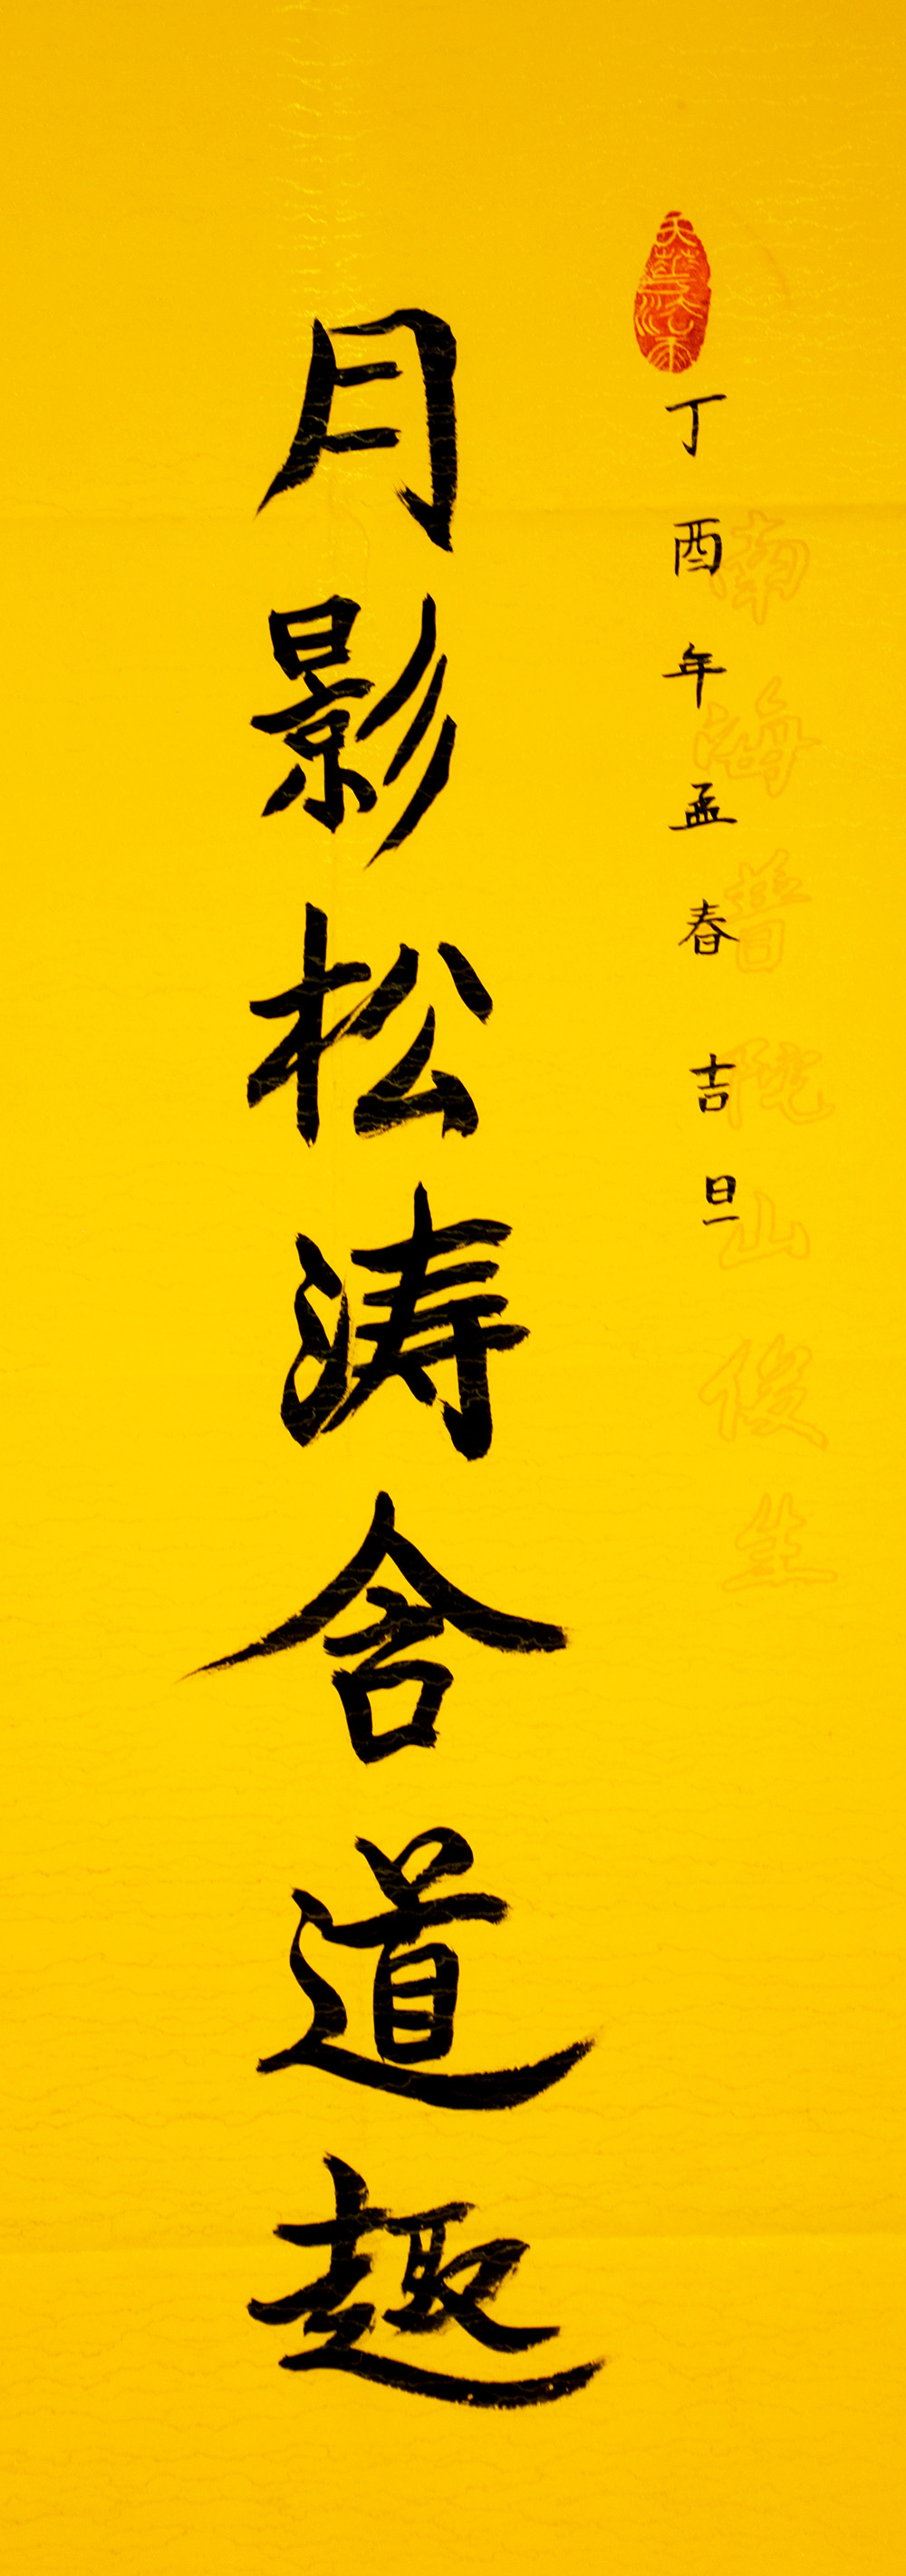 南海普陀山俊
丁酉年孟春吉旦
月影松涛含道趣